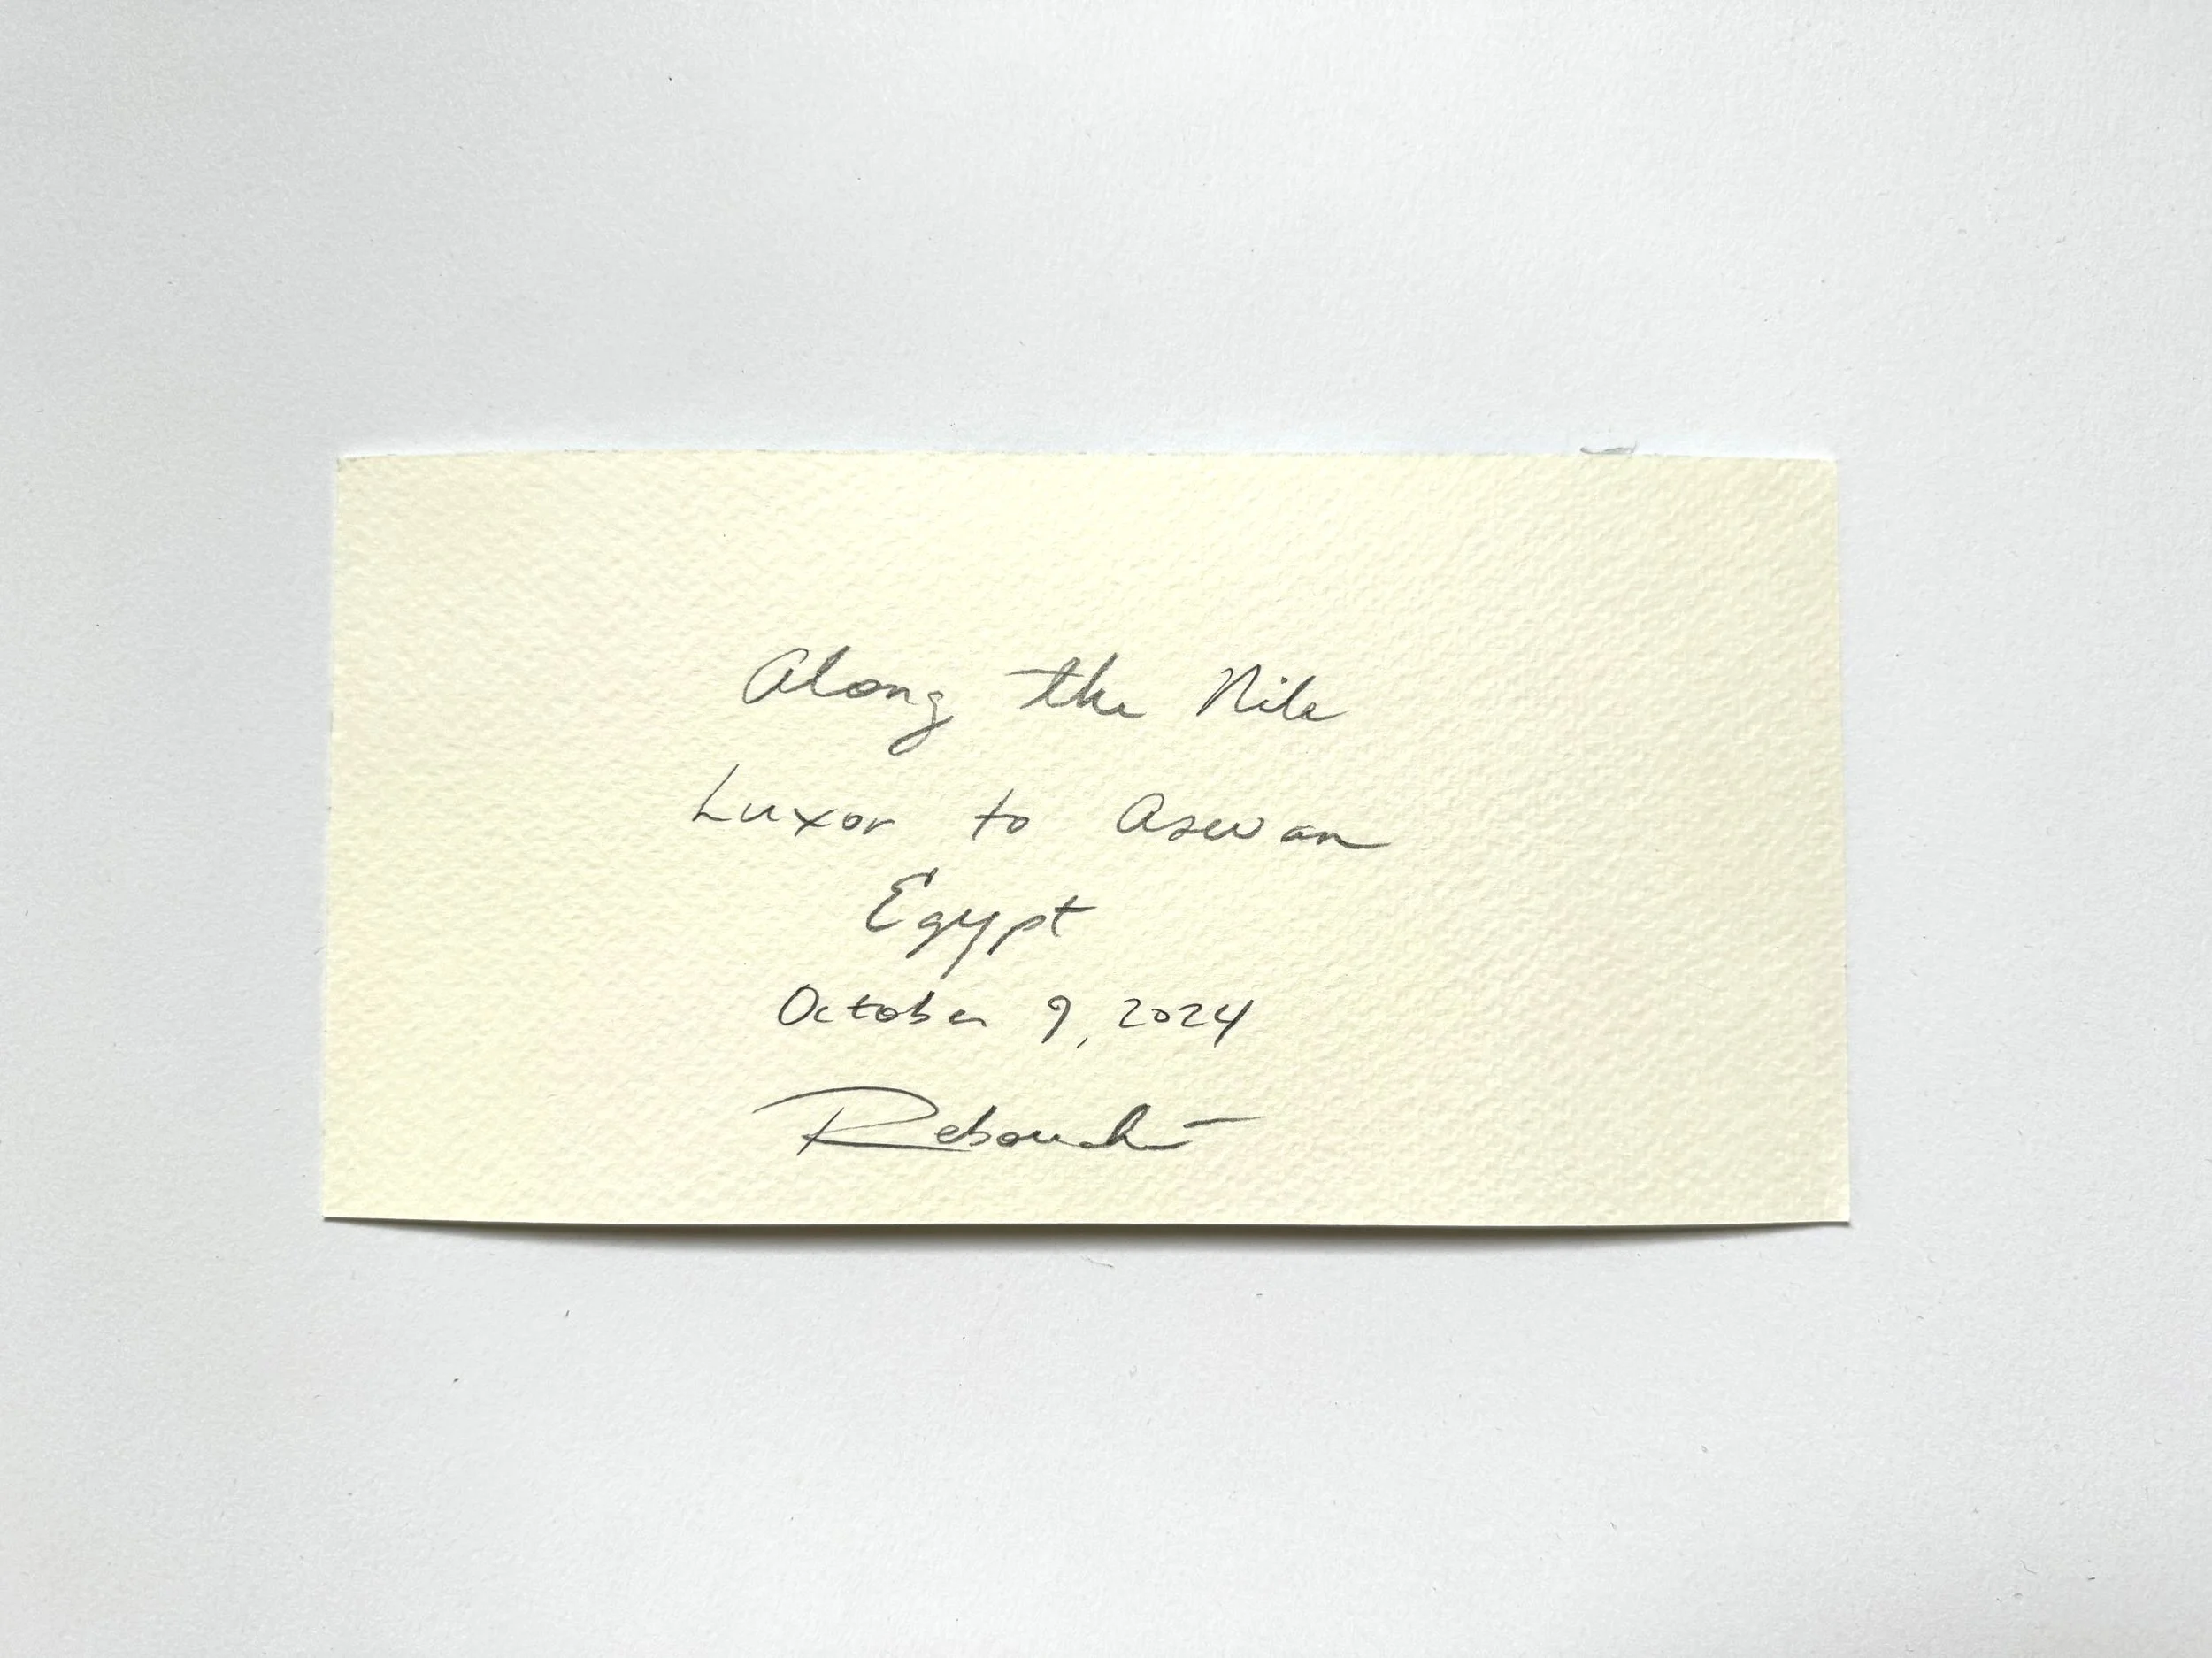 Along the Nile
Luxor to Aswan
Egypt
October 9, 2024